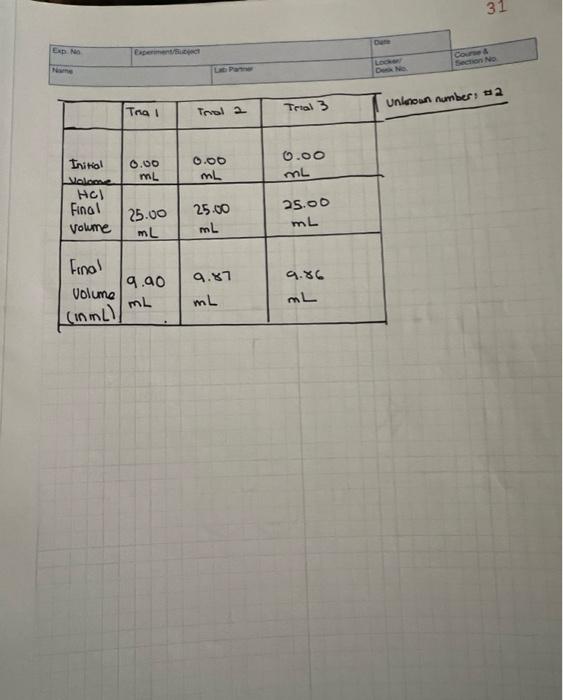 31
Exp. No.
Experiment/Subject
Date
Name
Lab Partner
Locker/
Desk No.
Course &
Section No.
Unknown number: #2
Trial 1
Trial 2
Trial 3
Initial
Volume
0.00
mL
0.00
mL
0.00
mL
HCl
Final
volume
25.00
mL
25.00
mL
25.00
mL
Final
Volume
(in mL)
9.90
mL
9.87
mL
9.86
mL